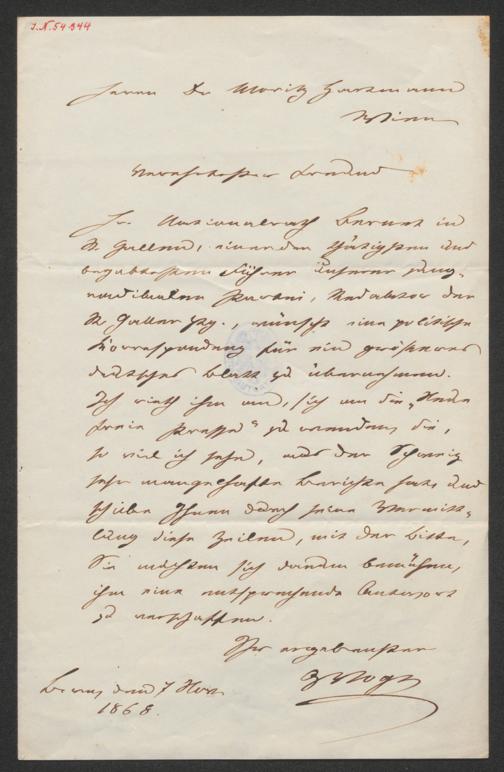 I.N. 54.344
Herrn Dr Moritz Hartmann
Wien
Verehrtester Freund
Hr. Nationalrath Bernet in
St. Gallen, einer der thätigsten und
begabtesten Führer unserer jung-
radikalen Partei, Redaktor der
St. Galler Ztg., wünscht eine politische
Korrespondenz für ein größeres
deutsches Blatt zu übernehmen.
Ich rieth ihm an, sich an die „Neue
freie Presse“ zu wenden, die,
so viel ich sehe, aus der Schweiz
sehr mangelhafte Berichte hat, und
schreibe Ihnen durch seine Vermitt-
lung diese Zeilen, mit der Bitte,
Sie möchten sich darum bemühen,
ihm eine entsprechende Antwort
zu verschaffen.
Ihr ergebenster
Vogt
Bern, den 7 Nov.
1868.